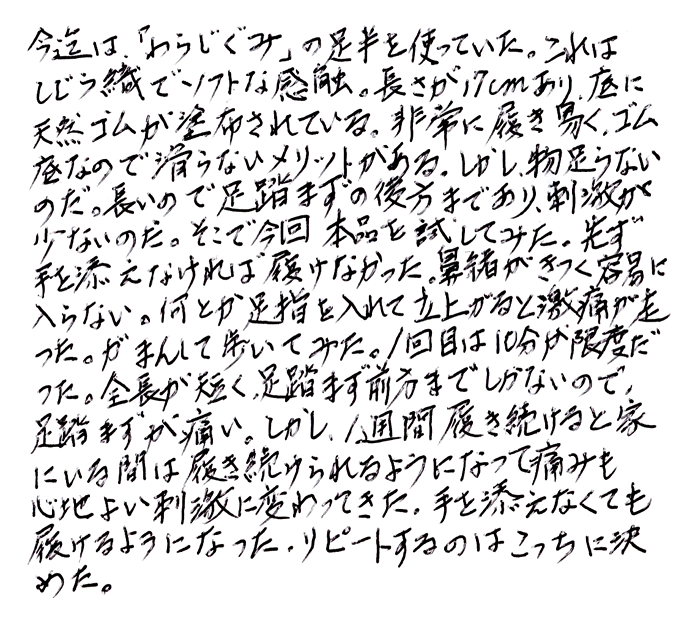 今迄は、「わらじぐみ」の足半を使っていた。これは
しじら織でソフトな感触。長さが17cmあり、底に
天然ゴムが塗布されている。非常に履き易く、ゴム
底なので滑らないメリットがある。しかし、物足らない
のだ。長いので足踏まずの後方まであり、刺激が
少ないのだ。そこで今回本品を試してみた。先ず
手を添えなければ履けなかった。鼻緒がきつく容易に
入らない。何とか足指を入れて立上がると激痛が走
った。がまんして歩いてみた。1回目は10分が限度だ
った。全長が短く、足踏まず前方までしかないので、
足踏まずが痛い。しかし、1週間履き続けると家
にいる間は履き続けられるようになって痛みも
心地よい刺激に変わってきた。手を添えなくても
履けるようになった。リピートするのはこっちに決
めた。